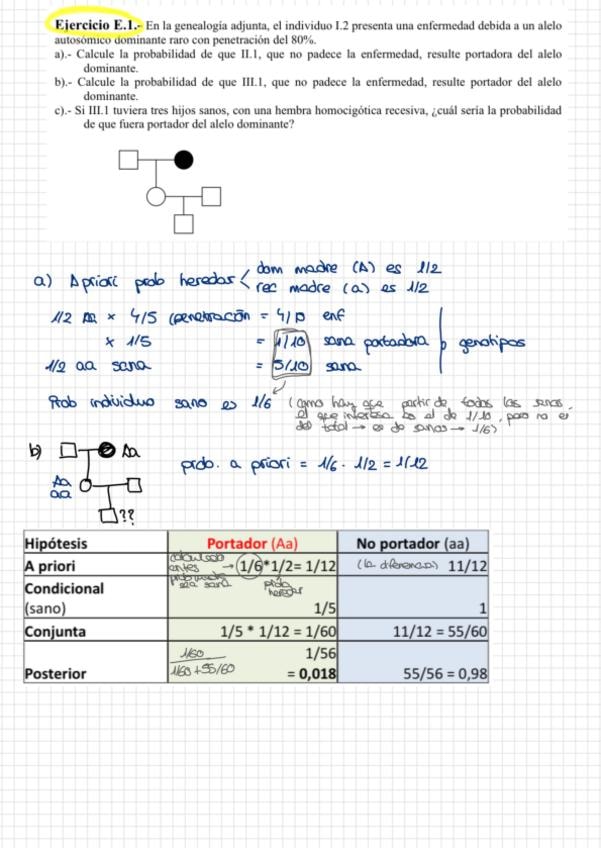 Ejercicio E.1.- En la genealogía adjunta, el individuo I.2 presenta una enfermedad debida a un alelo
autosómico dominante raro con penetración del 80%.
a).- Calcule la probabilidad de que II.1, que no padece la enfermedad, resulte portadora del alelo
dominante.
b).- Calcule la probabilidad de que III.1, que no padece la enfermedad, resulte portador del alelo
dominante.
c).- Si III.1 tuviera tres hijos sanos, con una hembra homocigótica recesiva, ¿cuál sería la probabilidad
de que fuera portador del alelo dominante?
a) A priori prob heredar < dom madre (A) es 1/2
rec madre (a) es 1/2
1/2 Aa × 4/5 (penetración = 4/10 enf
× 1/5 = 1/10 sana portadora
genotipos
1/2 aa sana = 5/10 sana
Prob individuo sano es 1/6 (como hay que partir de todas las sanas,
el que interesa es el de 1/10, pero no es
del total → es de sanos → 1/6)
b) Aa
Aa
aa
??
prob. a priori = 1/6 · 1/2 = 1/12
Hipótesis Portador (Aa) No portador (aa)
A priori calculado antes → 1/6*1/2= 1/12 (la diferencia) 11/12
sea sana
prob heredar
Condicional
(sano) 1/5 1
Conjunta 1/5 * 1/12 = 1/60 11/12 = 55/60
1/60 1/56
Posterior 1/60 + 55/60 = 0,018 55/56 = 0,98